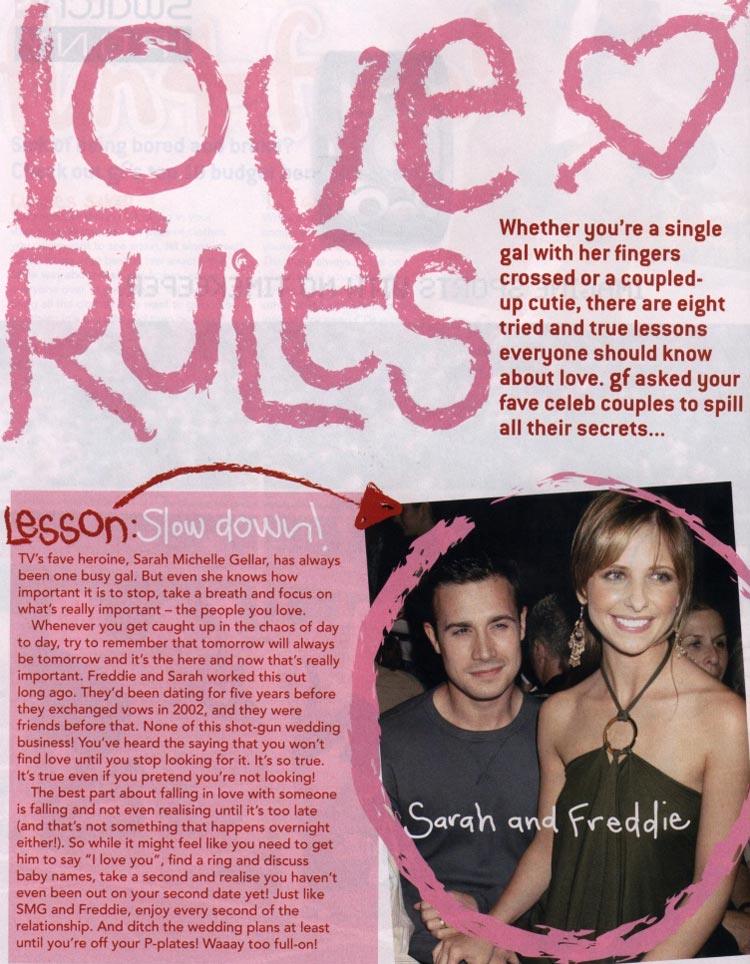 Love
Rules
Whether you're a single
gal with her fingers
crossed or a coupled-
up cutie, there are eight
tried and true lessons
everyone should know
about love. gf asked your
fave celeb couples to spill
all their secrets...
Lesson: Slow down!
TV's fave heroine, Sarah Michelle Gellar, has always
been one busy gal. But even she knows how
important it is to stop, take a breath and focus on
what's really important – the people you love.
Whenever you get caught up in the chaos of day
to day, try to remember that tomorrow will always
be tomorrow and it's the here and now that's really
important. Freddie and Sarah worked this out
long ago. They'd been dating for five years before
they exchanged vows in 2002, and they were
friends before that. None of this shot-gun wedding
business! You've heard the saying that you won't
find love until you stop looking for it. It's so true.
It's true even if you pretend you're not looking!
The best part about falling in love with someone
is falling and not even realising until it's too late
(and that's not something that happens overnight
either!). So while it might feel like you need to get
him to say "I love you", find a ring and discuss
baby names, take a second and realise you haven't
even been out on your second date yet! Just like
SMG and Freddie, enjoy every second of the
relationship. And ditch the wedding plans at least
until you're off your P-plates! Waaay too full-on!
Sarah and Freddie